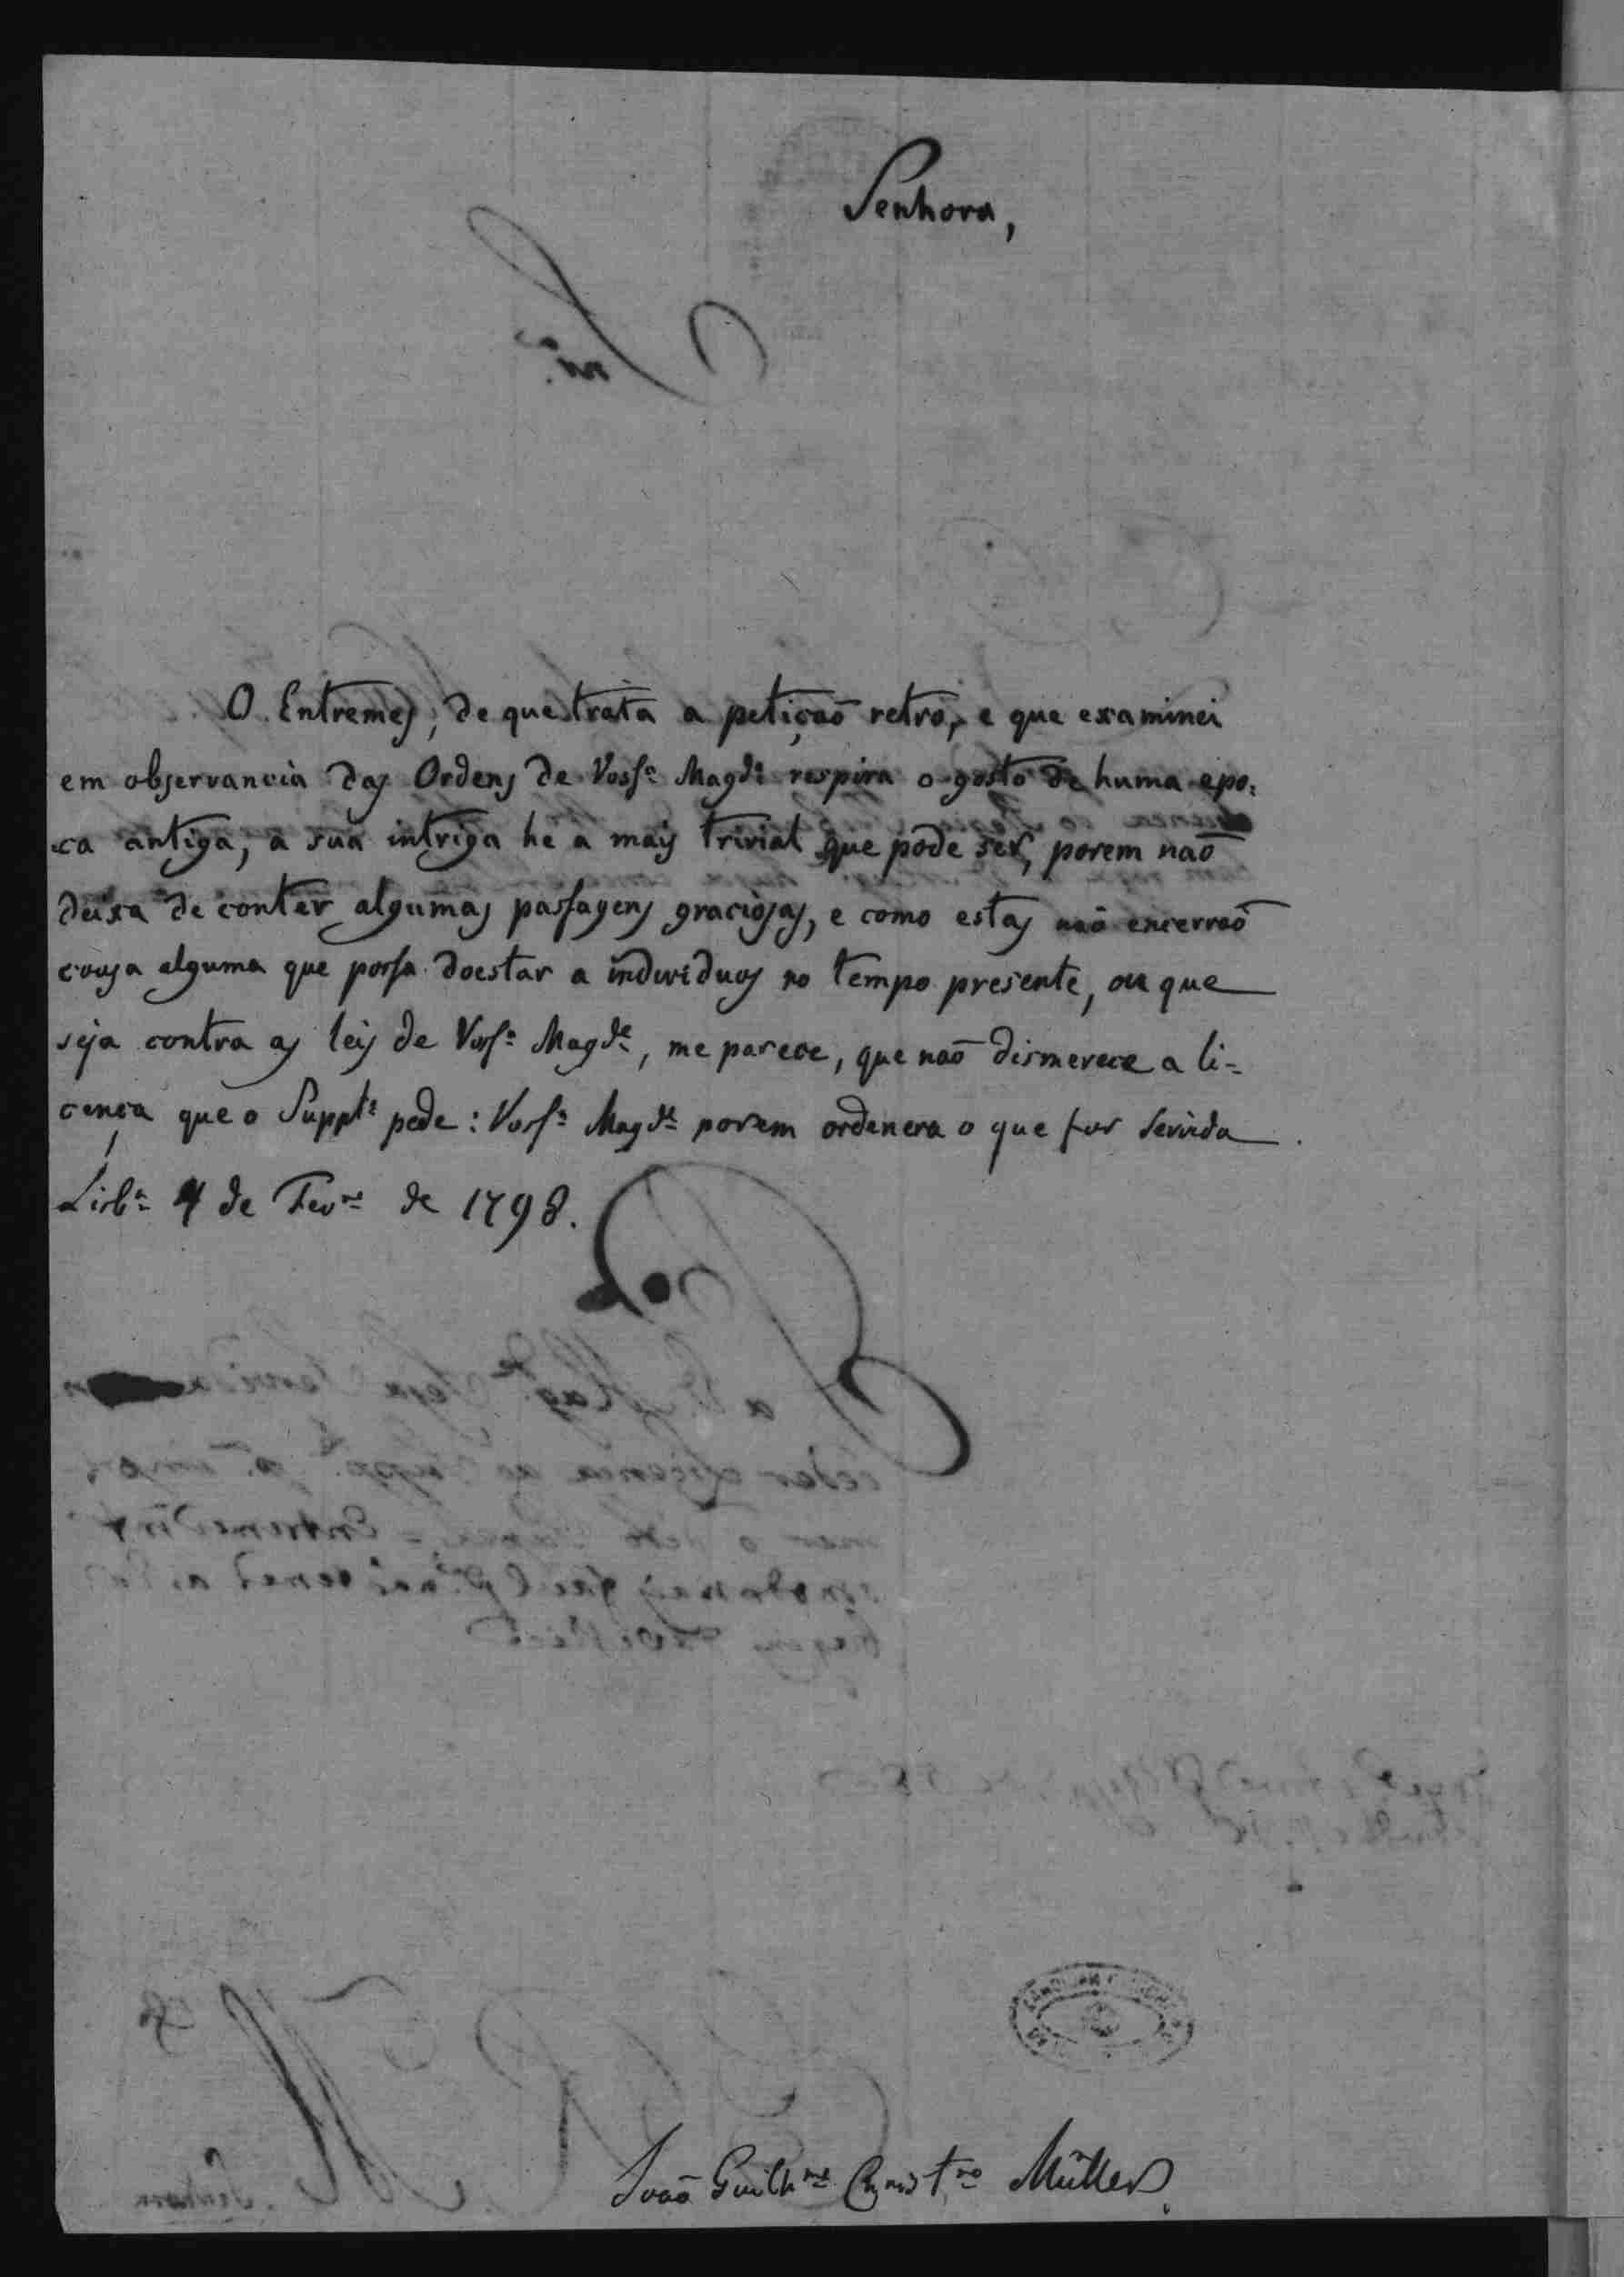 Senhora,
O Entremes, de que trata a petiçaõ retro, e que examinei
em observancia das Ordens de Voss.ª Mag.de respira o gosto de huma epo=
ca antiga, a sua intriga he a mais trivial que pode ser, porem naõ
deixa de conter algumas passagens graciosas, e como estas naõ encerraõ
cousa alguma que possa doestar a individuos no tempo presente, ou que
seja contra as leis de Voss.ª Mag.de, me parece, que naõ dismerece a li=
cença que o Supp.te pede: Voss.ª Mag.de porem ordenera o que for servida.
Lisb.ª 4 de Fev.ro de 1798.
João Guilh.me Christ.no Müller